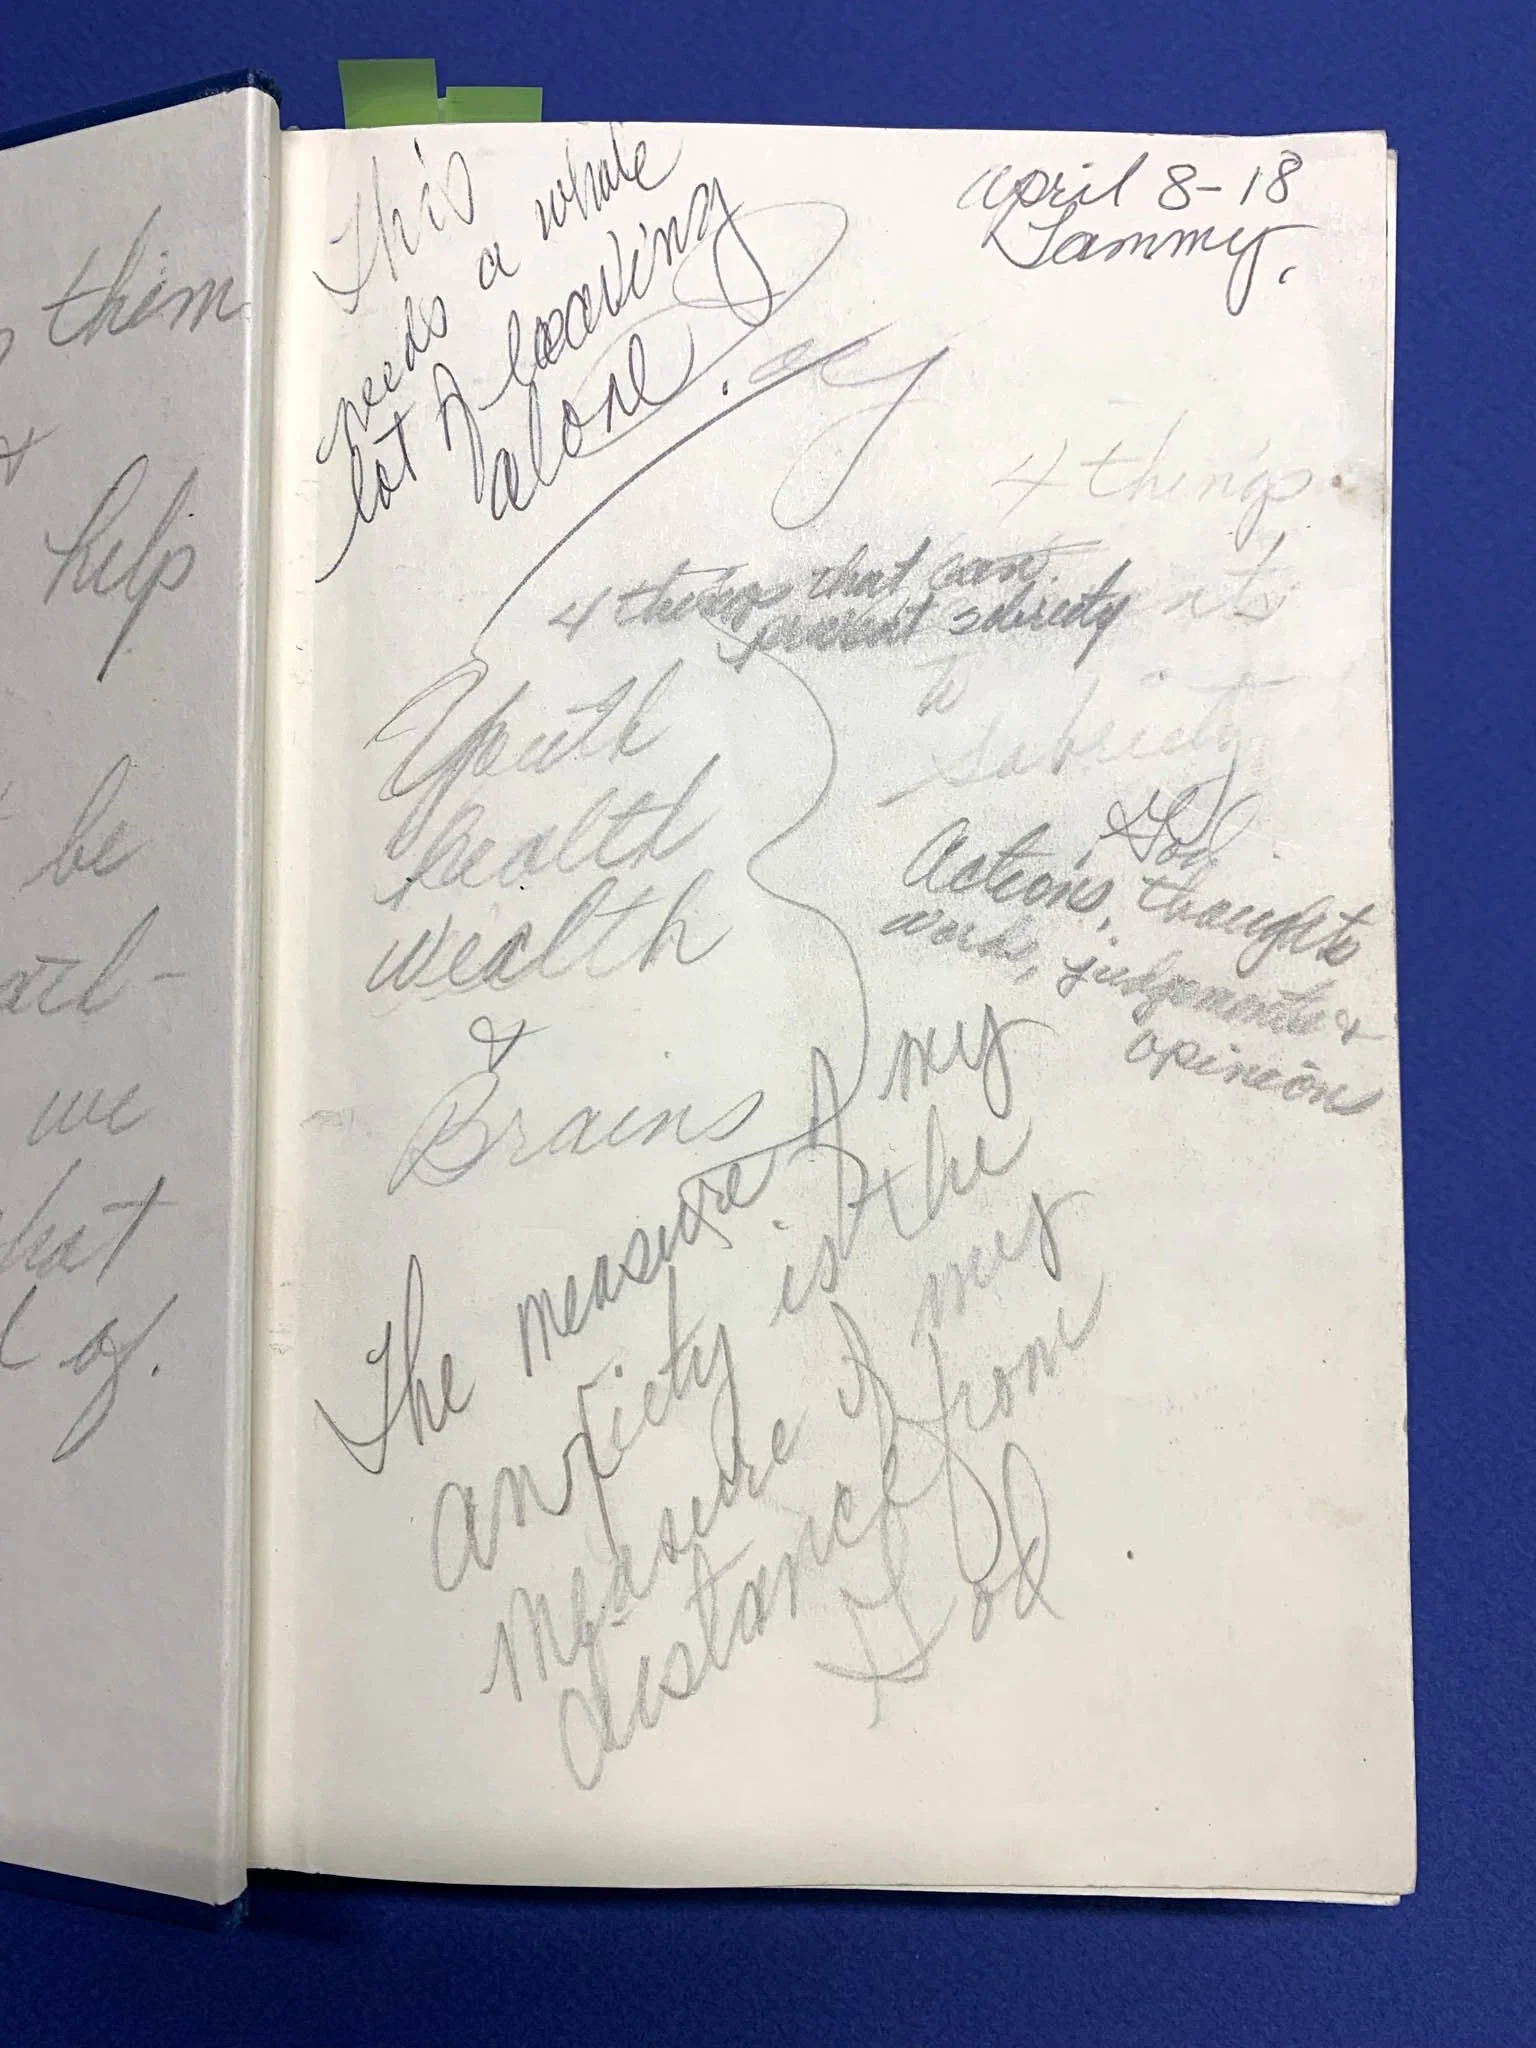 them
&
help
be
we
of.
This
needs a whole
lot of leaving
alone.
April 8-18
Tammy.
4 things
4 things that can
prevent sobriety
to
sobriety
Youth
health
wealth
&
Brains
God
Actions, thoughts
words, judgements &
opinions
The measure of my
anxiety is the
measure of my
distance from
God